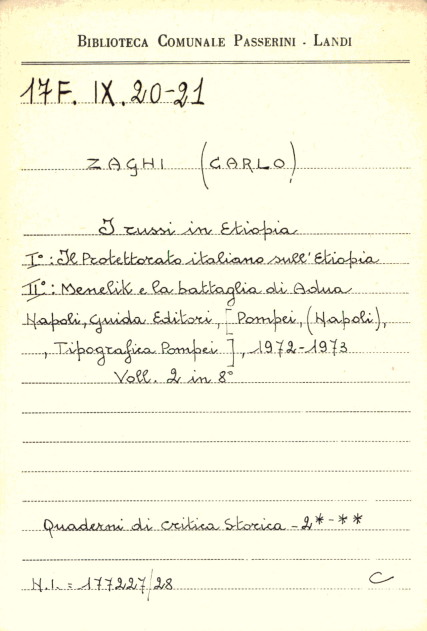 BIBLIOTECA COMUNALE PASSERINI - LANDI
17F. IX. 20-21
ZAGHI (CARLO)
I russi in Etiopia
I°: Il Protettorato italiano sull'Etiopia
II°: Menelik e la battaglia di Adua
Napoli, Guida Editori, [Pompei, (Napoli),
, Tipografica Pompei], 1972-1973
Voll. 2 in 8°
Quaderni di critica Storica - 2*-**
N.I. = 177227/28 C